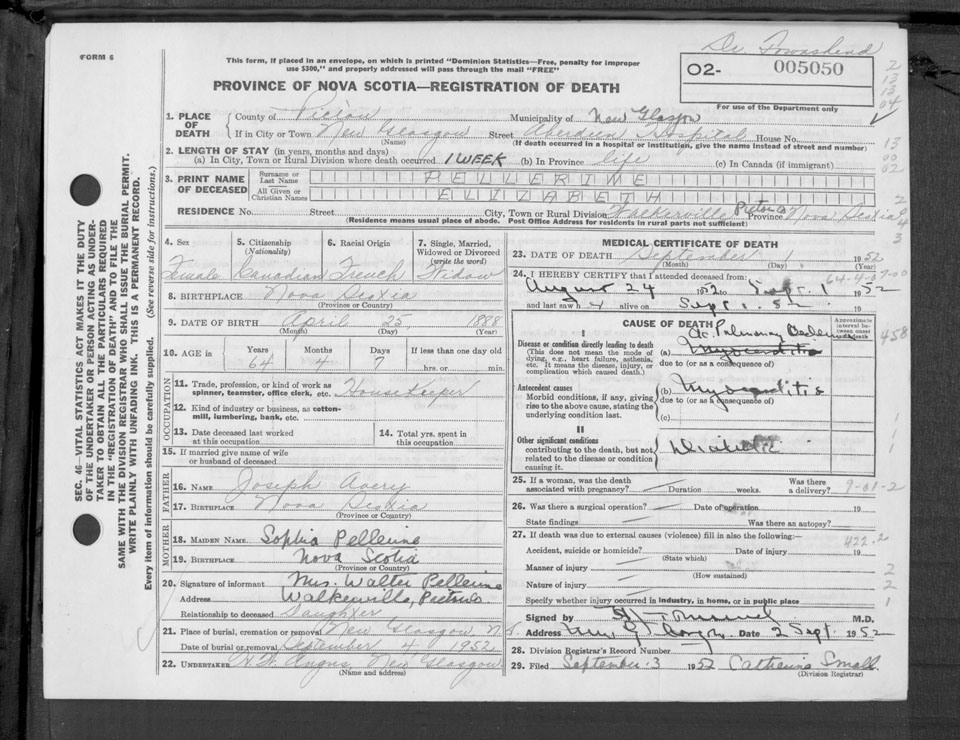 FORM 6
This form, if placed in an envelope, on which is printed "Dominion Statistics—Free, penalty for improper
use $300," and properly addressed will pass through the mail "FREE"
Dr. Townshend
02- 005050
For use of the Department only
PROVINCE OF NOVA SCOTIA—REGISTRATION OF DEATH
1. PLACE OF DEATH
County of Pictou Municipality of New Glasgow
If in City or Town New Glasgow Street Aberdeen Hospital House No.
(Name) (If death occurred in a hospital or institution, give the name instead of street and number)
2. LENGTH OF STAY (in years, months and days)
(a) In City, Town or Rural Division where death occurred 1 WEEK (b) In Province life (c) In Canada (if immigrant)
3. PRINT NAME OF DECEASED
Surname or Last Name PELLERINE
All Given or Christian Names ELIZABETH
RESIDENCE No. Street City, Town or Rural Division Walkerville Pictou Co Province Nova Scotia
(Residence means usual place of abode. Post Office Address for residents in rural parts not sufficient)
4. Sex Female
5. Citizenship (Nationality) Canadian
6. Racial Origin French
7. Single, Married, Widowed or Divorced (write the word) Widow
8. BIRTHPLACE Nova Scotia
(Province or Country)
9. DATE OF BIRTH April 25, 1888
(Month) (Day) (Year)
10. AGE in Years Months Days If less than one day old
64 4 7 hrs. or min.
OCCUPATION
11. Trade, profession, or kind of work as
spinner, teamster, office clerk, etc. HouseKeeper
12. Kind of industry or business, as cotton-
mill, lumbering, bank, etc.
13. Date deceased last worked
at this occupation
14. Total yrs. spent in
this occupation
15. If married give name of wife
or husband of deceased
FATHER
16. NAME Joseph Avery
17. BIRTHPLACE Nova Scotia
(Province or Country)
MOTHER
18. MAIDEN NAME Sophia Pellerine
19. BIRTHPLACE Nova Scotia
(Province or Country)
20. Signature of informant Mrs. Walter Pellerine
Address Walkerville, Pictou
Relationship to deceased Daughter
21. Place of burial, cremation or removal New Glasgow, N.S.
Date of burial or removal September 4, 1952
22. UNDERTAKER Angus, New Glasgow
(Name and address)
MEDICAL CERTIFICATE OF DEATH
23. DATE OF DEATH September 1 1952
(Month) (Day) (Year)
24. I HEREBY CERTIFY that I attended deceased from:
August 24 1952 to Sept. 1 1952
and last saw h alive on Sept. 1. 52 19
CAUSE OF DEATH
Approximate interval between onset and death
I
Disease or condition directly leading to death
(This does not mean the mode of
dying, e.g., heart failure, asthenia,
etc. It means the disease, injury, or
complication which caused death.)
Ac. Pulmonary Oedema
(a) Myocarditis
due to (or as a consequence of)
Antecedent causes
Morbid conditions, if any, giving
rise to the above cause, stating the
underlying condition last.
(b) Myocarditis
due to (or as a consequence of)
(c)
II
Other significant conditions
contributing to the death, but not
related to the disease or condition
causing it.
25. If a woman, was the death
associated with pregnancy? Duration weeks. Was there
a delivery?
26. Was there a surgical operation? Date of operation 19
State findings Was there an autopsy?
27. If death was due to external causes (violence) fill in also the following:—
Accident, suicide or homicide? Date of injury 19
(State which)
Manner of injury
(How sustained)
Nature of injury
Specify whether injury occurred in industry, in home, or in public place
Signed by M.D.
Address Date 2 Sept. 1952
28. Division Registrar's Record Number
29. Filed September 3 1952 Catherine Small
(Division Registrar)
SEC. 46—VITAL STATISTICS ACT MAKES IT THE DUTY
OF THE UNDERTAKER OR PERSON ACTING AS UNDER-
TAKER TO OBTAIN ALL THE PARTICULARS REQUIRED
IN THE "REGISTRATION OF DEATH" AND TO FILE THE
SAME WITH THE DIVISION REGISTRAR WHO SHALL ISSUE THE BURIAL PERMIT.
WRITE PLAINLY WITH UNFADING INK. THIS IS A PERMANENT RECORD.
Every item of information should be carefully supplied. (See reverse side for instructions.)